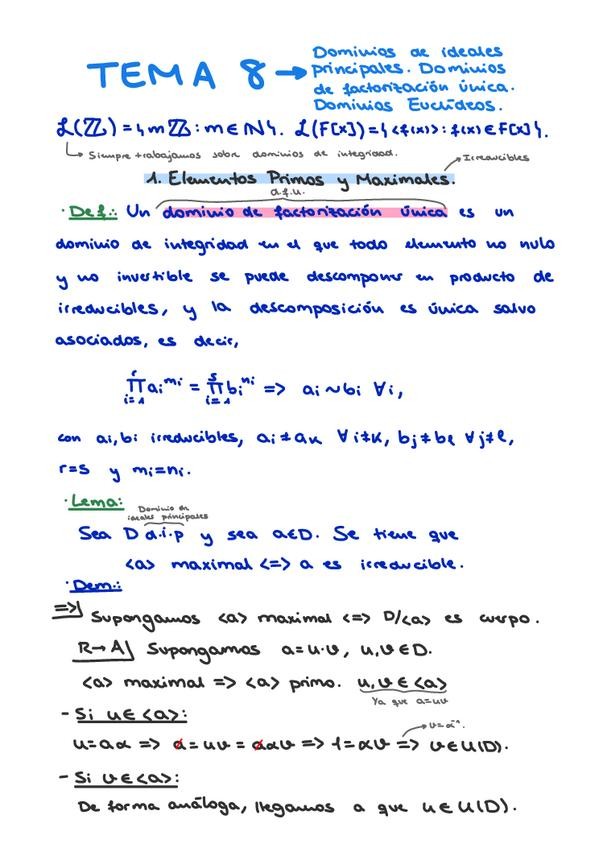 TEMA 8 → Dominios de ideales
principales. Dominios
de factorización única.
Dominios Euclídeos.
ℒ(ℤ) = {mℤ : m ∈ ℕ}. ℒ(F[x]) = {<f(x)> : f(x) ∈ F[x]}.
↳ Siempre trabajamos sobre dominios de integridad.
Irreducibles
1. Elementos Primos y Maximales.
d.f.u.
· Def.: Un dominio de factorización única es un
dominio de integridad en el que todo elemento no nulo
y no invertible se puede descomponer en producto de
irreducibles, y la descomposición es única salvo
asociados, es decir,
∏_{i=1}^{r} ai^{mi} = ∏_{i=1}^{s} bi^{ni} => ai ~ bi ∀i,
con ai, bi irreducibles, ai ≠ ak ∀i≠k, bj ≠ bl ∀j≠l,
r=s y mi=ni.
· Lema:
Dominio de
ideales principales
Sea D d.i.p y sea a∈D. Se tiene que
<a> maximal <=> a es irreducible.
· Dem.:
=>| Supongamos <a> maximal <=> D/<a> es cuerpo.
R→A| Supongamos a=u·v, u,v∈D.
<a> maximal => <a> primo. u,v∈<a>
Ya que a=uv
- Si u∈<a>:
v=α⁻¹.
u=aα => a=uv=aαv => 1=αv => v∈U(D).
- Si v∈<a>:
De forma análoga, llegamos a que u∈U(D).